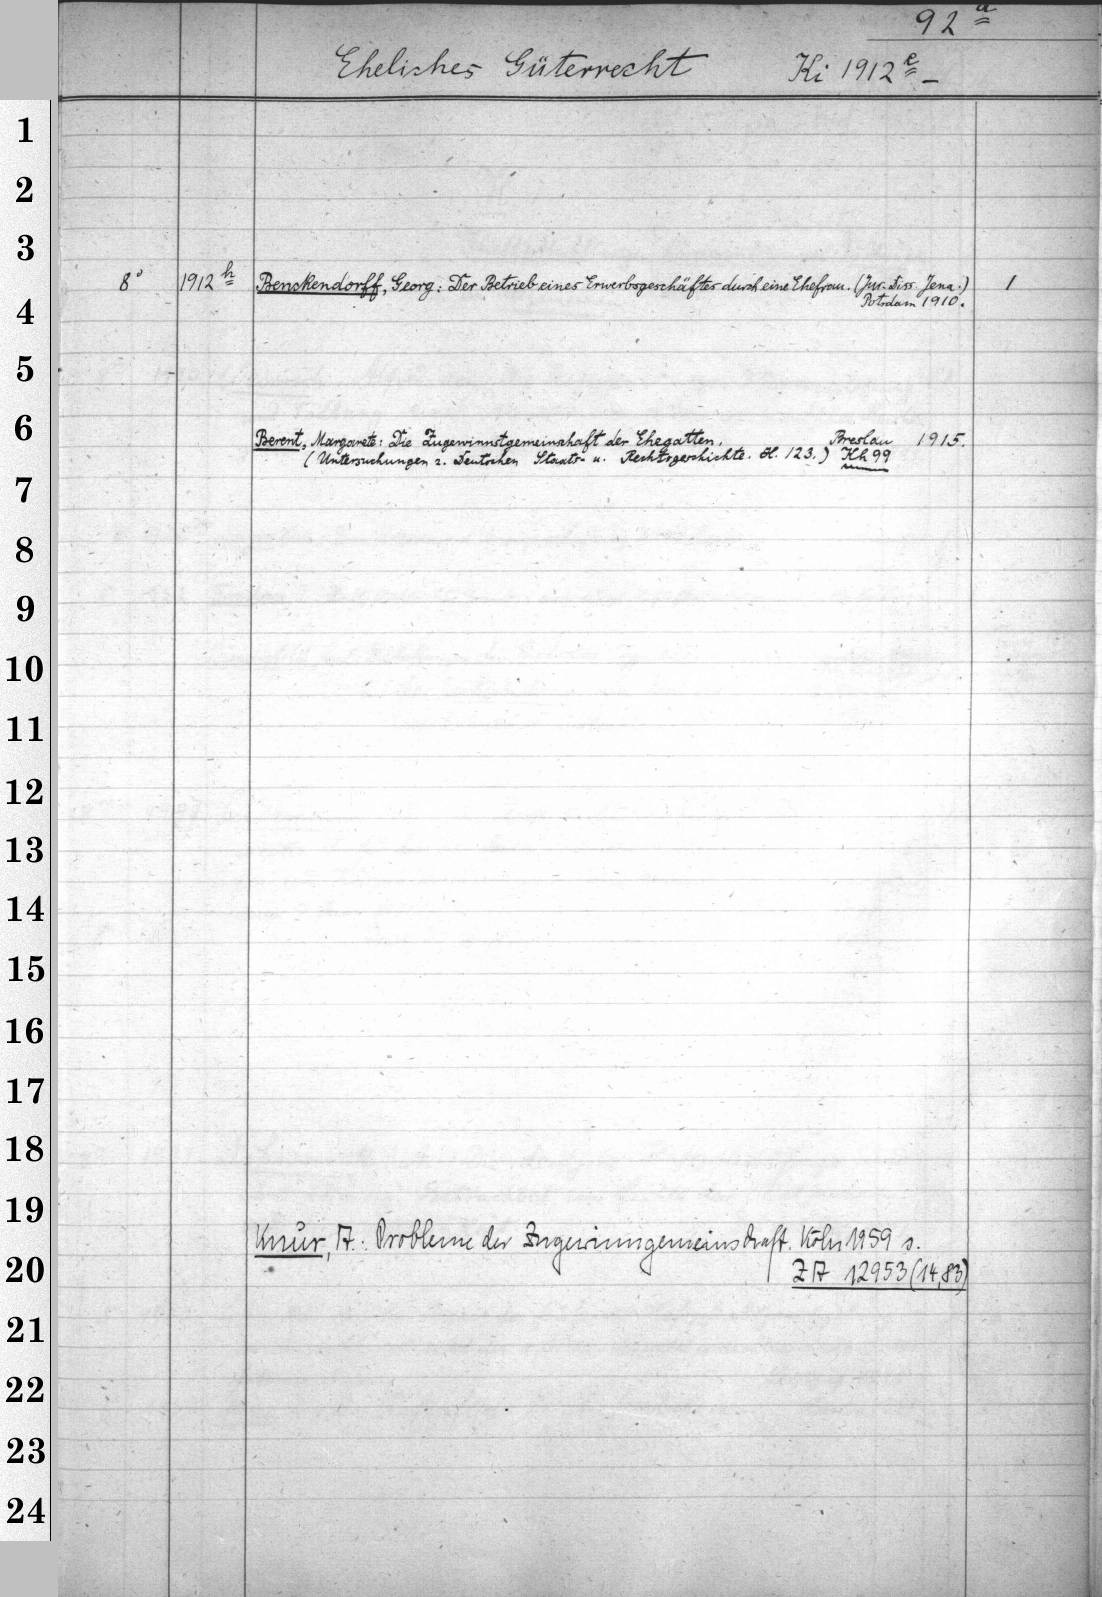 92 a
Eheliches Güterrecht Ki 1912 e –
1
2
3
8° 1912 h Benckendorff, Georg: Der Betrieb eines Erwerbsgeschäftes durch eine Ehefrau. (Jur. Diss. Jena.) 1
Potsdam 1910.
4
5
6
Berent, Margarete: Die Zugewinnstgemeinschaft der Ehegatten. Breslau 1915.
(Untersuchungen z. Deutschen Staats- u. Rechtsgeschichte. H. 123.) Kh 99
7
8
9
10
11
12
13
14
15
16
17
18
19
Knur, A.: Probleme der Zugewinngemeinschaft. Köln 1959 s.
ZA 12953 (14,83)
20
21
22
23
24